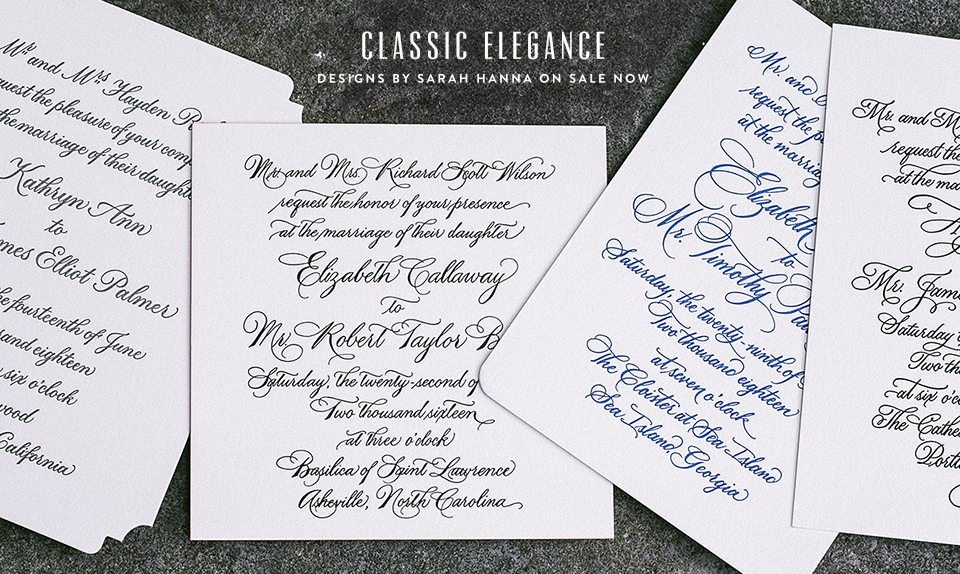 CLASSIC ELEGANCE
DESIGNS BY SARAH HANNA ON SALE NOW
Mr. and Mrs. Hayden
request the pleasure of your
the marriage of their daughter
Kathryn Ann
to
Elliot Palmer
the fourteenth of June
and eighteen
six o'clock
California
Mr. and Mrs. Richard Scott Wilson
request the honor of your presence
at the marriage of their daughter
Elizabeth Callaway
to
Mr. Robert Taylor B
Saturday, the twenty-second of
Two thousand, sixteen
at three o'clock
Basilica of Saint Lawrence
Asheville, North Carolina
Mr. and
request the
at the marriage
Elizabeth
to
Mr. Timothy
Saturday, the twenty-ninth of
Two thousand eighteen
at seven o'clock
The Cloister at Sea Island
Sea Island, Georgia
Mr. and
request the
at the
Mr.
Saturday
Two
at six o'
The